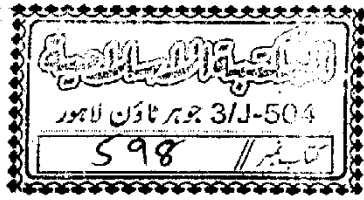 المكتبة الاسلامية
504-J/3 جوہر ٹاؤن لاہور
کتاب نمبر // 598